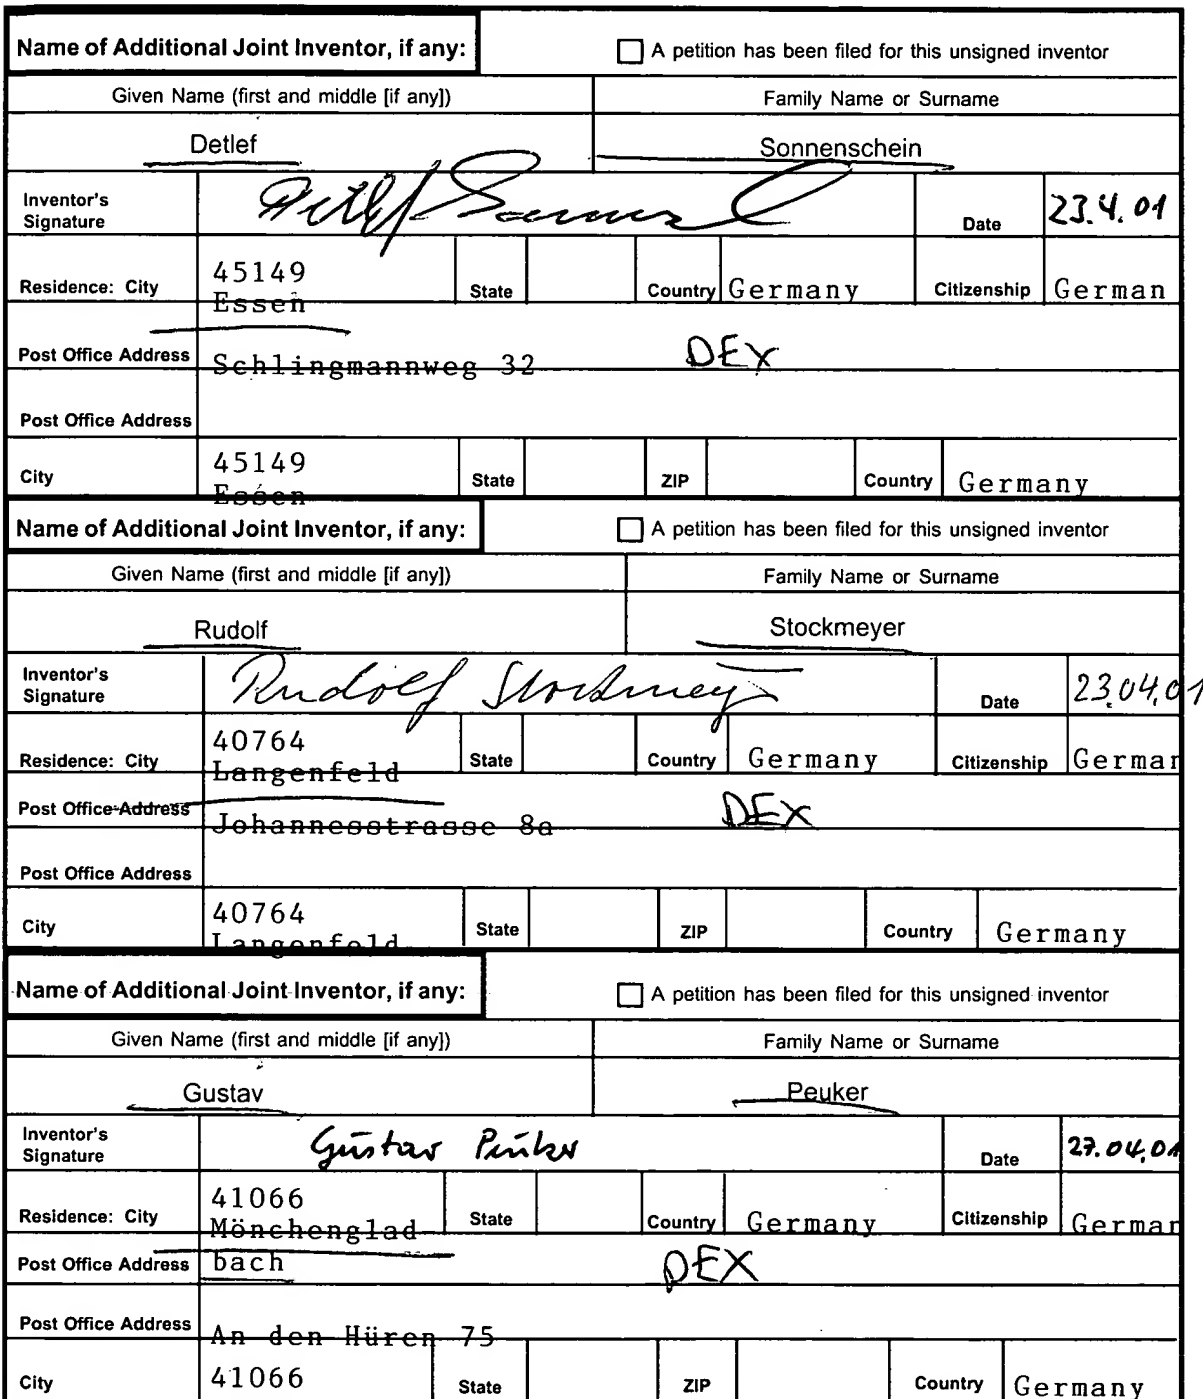 Name of Additional Joint Inventor, if any: A petition has been filed for this unsigned inventor
Given Name (first and middle [if any]) Family Name or Surname
Detlef Sonnenschein
Inventor's
Signature Date 23.4.01
45149
Residence: City Essen State Country Germany Citizenship German
Post Office Address Schlingmannweg 32 DEX
Post Office Address
45149
City Essen State ZIP Country Germany
Name of Additional Joint Inventor, if any: A petition has been filed for this unsigned inventor
Given Name (first and middle [if any]) Family Name or Surname
Rudolf Stockmeyer
Inventor's
Signature Rudolf Stockmeyer Date 23.04.01
40764
Residence: City Langenfeld State Country Germany Citizenship German
Post Office Address Johannesstrasse 8a DEX
Post Office Address
40764
City Langenfeld State ZIP Country Germany
Name of Additional Joint Inventor, if any: A petition has been filed for this unsigned inventor
Given Name (first and middle [if any]) Family Name or Surname
Gustav Peuker
Inventor's
Signature Gustav Peuker Date 27.04.01
41066
Residence: City Mönchenglad State Country Germany Citizenship German
Post Office Address bach DEX
Post Office Address An den Hüren 75
City 41066 State ZIP Country Germany